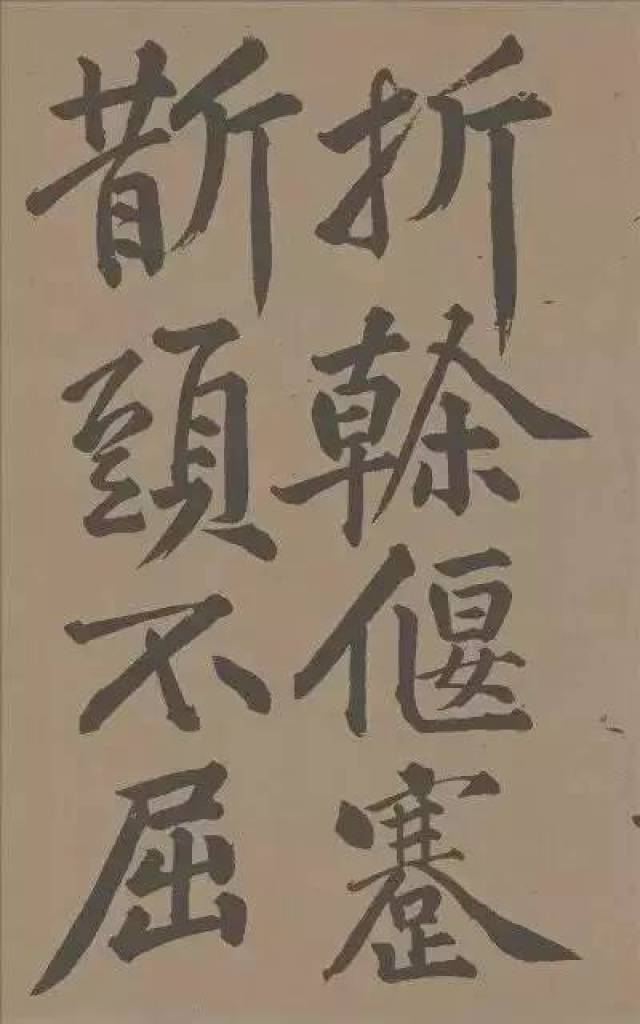 折榦偃蹇
斮頭不屈